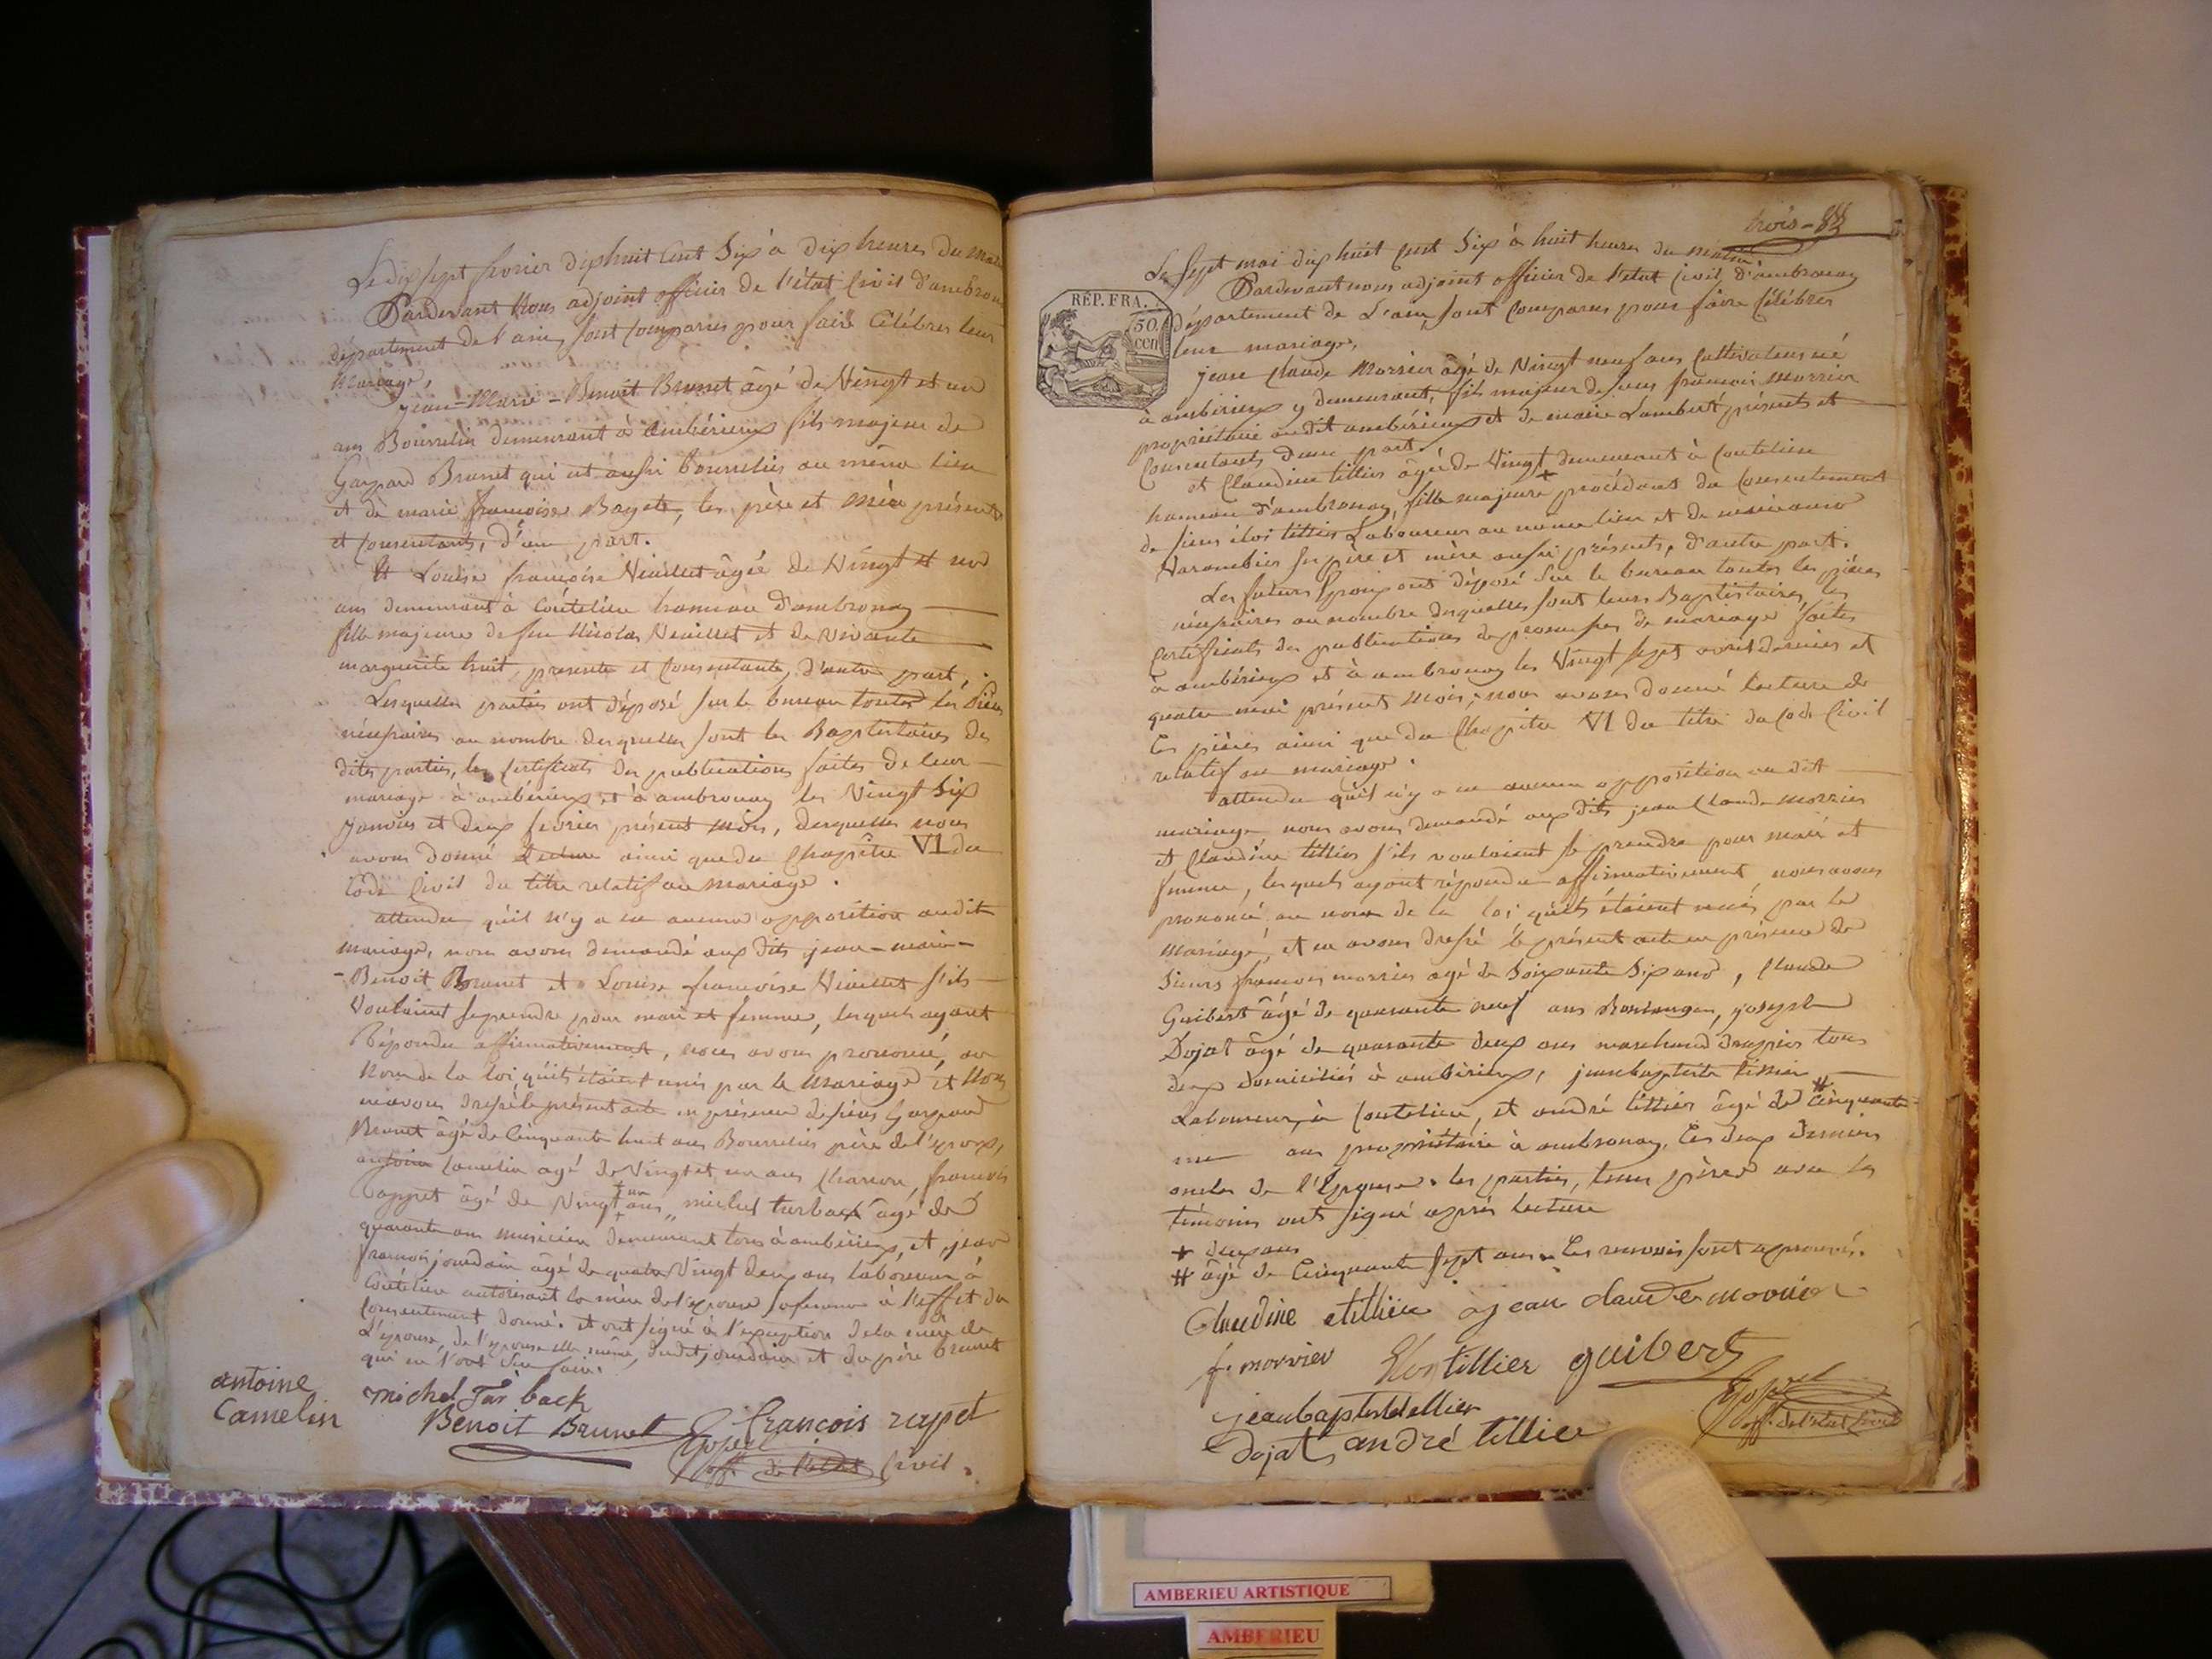 Le dix sept fevrier dix huit cent six à dix heures du
Pardevant Nous adjoint officier de l'état civil d'ambron
département de l'ain, sont comparus pour faire célébrer leur
Mariage,
Jean-Marie-Benoit Brunet âgé de Vingt et un
ans Bourrelier demeurant à ambérieux fils majeur de
Gaspard Brunet qui est aussi bourrelier au même lieu
et de marie françoise, les père et mère présents
et consentants, d'une part.
Et Louise françoise Viaillet âgée de Vingt et un
ans demeurant à Coutelieu hameau d'ambronay
fille majeure de feu Nicolas Viaillet et de vivante
marguerite, presente et consentante, d'autre part,
Lesquelles parties ont déposé sur le bureau toutes les pièces
nécessaires au nombre desquelles sont les Baptistaires des
dites parties, les certificats des publications faites de leur
mariage à ambérieux et à ambronay les Vingt six
janvier et deux fevrier présent mois, desquelles nous
avons donné lecture ainsi que du Chapitre VI du
Code Civil du titre relatif au mariage.
attendu qu'il n'y a eu aucune opposition audit
mariage, nous avons demandé aux dits jean-marie-
-Benoit Brunet et Louise françoise Viaillet s'ils
Voulaient se prendre pour mari et femme, lesquels ayant
Répondu affirmativement, nous avons prononcé, au
Nom de la loi, qu'ils étaient unis par le Mariage et Nous
en avons dressé le présent acte en présence de sieurs Gaspard
Brunet âgé de Cinquante huit ans Bourrelier père de l'epoux,
antoine Camelin agé de Vingt et un ans Charron, francois
âgé de Vingt un ans, michel turback âgé de
quarante ans musicien demeurant tous à ambérieux, et jean
francois jourdain âgé de quatre Vingt deux ans laboureur à
Coutelieu autorisant la mère de l'epouse sa femme à l'effet du
consentement donné. et ont signé à l'exception de la mère de
L'épouse, de l'epouse elle même, dudit jourdain et du père brunet
qui ne l'ont su faire.
antoine
Camelin
michel Tur back
Benoit Brunet
francois rapet
off. de l'état Civil.
trois
Le Sept mai dix huit cent Six à huit heures du matin
Pardevant nous adjoint officier de l'etat civil d'ambronay
RÉP. FRA.
50
cen
département de L'ain, sont comparus pour faire célébrer
leur mariage,
jean Claude Morrier âgé de Vingt neuf ans Cultivateur né
à ambérieux y demeurant, fils majeur de sieur francois Morrier
propriétaire audit ambérieux et de marie Lambert présents et
consentants d'une part.
et Claudine tillier âgée de Vingt + demeurant à Coutelieu
hameau d'ambronay, fille majeure procédant du consentement
de sieur éloi tillier Laboureur au même lieu et de
Varambier ses père et mère aussi présents, d'autre part.
Les futurs Epoux ont déposé sur le bureau toutes les pièces
nécessaires au nombre desquelles sont leurs Baptistaires, les
certificats des publications de promesses de mariage faites
à ambérieux et à ambronay les Vingt sept avril dernier et
quatre mai présent mois; nous avons donné lecture de
ces pièces ainsi que du Chapitre VI du titre du Code Civil
relatif au mariage.
attendu qu'il n'y a eu aucune opposition audit
mariage nous avons demandé aux dits jean Claude Morrier
et Claudine tillier s'ils voulaient se prendre pour mari et
femme, lesquels ayant répondu affirmativement nous avons
prononcé au nom de la loi qu'ils étaient unis par le
Mariage, et en avons dressé le présent acte en présence de
Sieurs francois morrier agé de Soixante Six ans, Claude
Guibert âgé de quarante neuf ans Boulanger, joseph
Dojat âgé de quarante deux ans marchand drapier tous
deux domiciliés à ambérieux, jean baptiste tillier #
Laboureur, à Coutelieu, et andré tillier âgé de Cinquante
un ans propriétaire à ambronay. Ces deux derniers
oncles de l'Epouse. les parties, leurs pères avec les
témoins ont signé après lecture
+ deux ans
# âgé de Cinquante sept ans. Les renvois sont approuvés.
Claudine tillier jean claude morrier
f. morrier Eloi tillier guibert
jean baptiste tillier
Dojat andré tillier
off. de l'etat Civil
AMBERIEU ARTISTIQUE
AMBERIEU